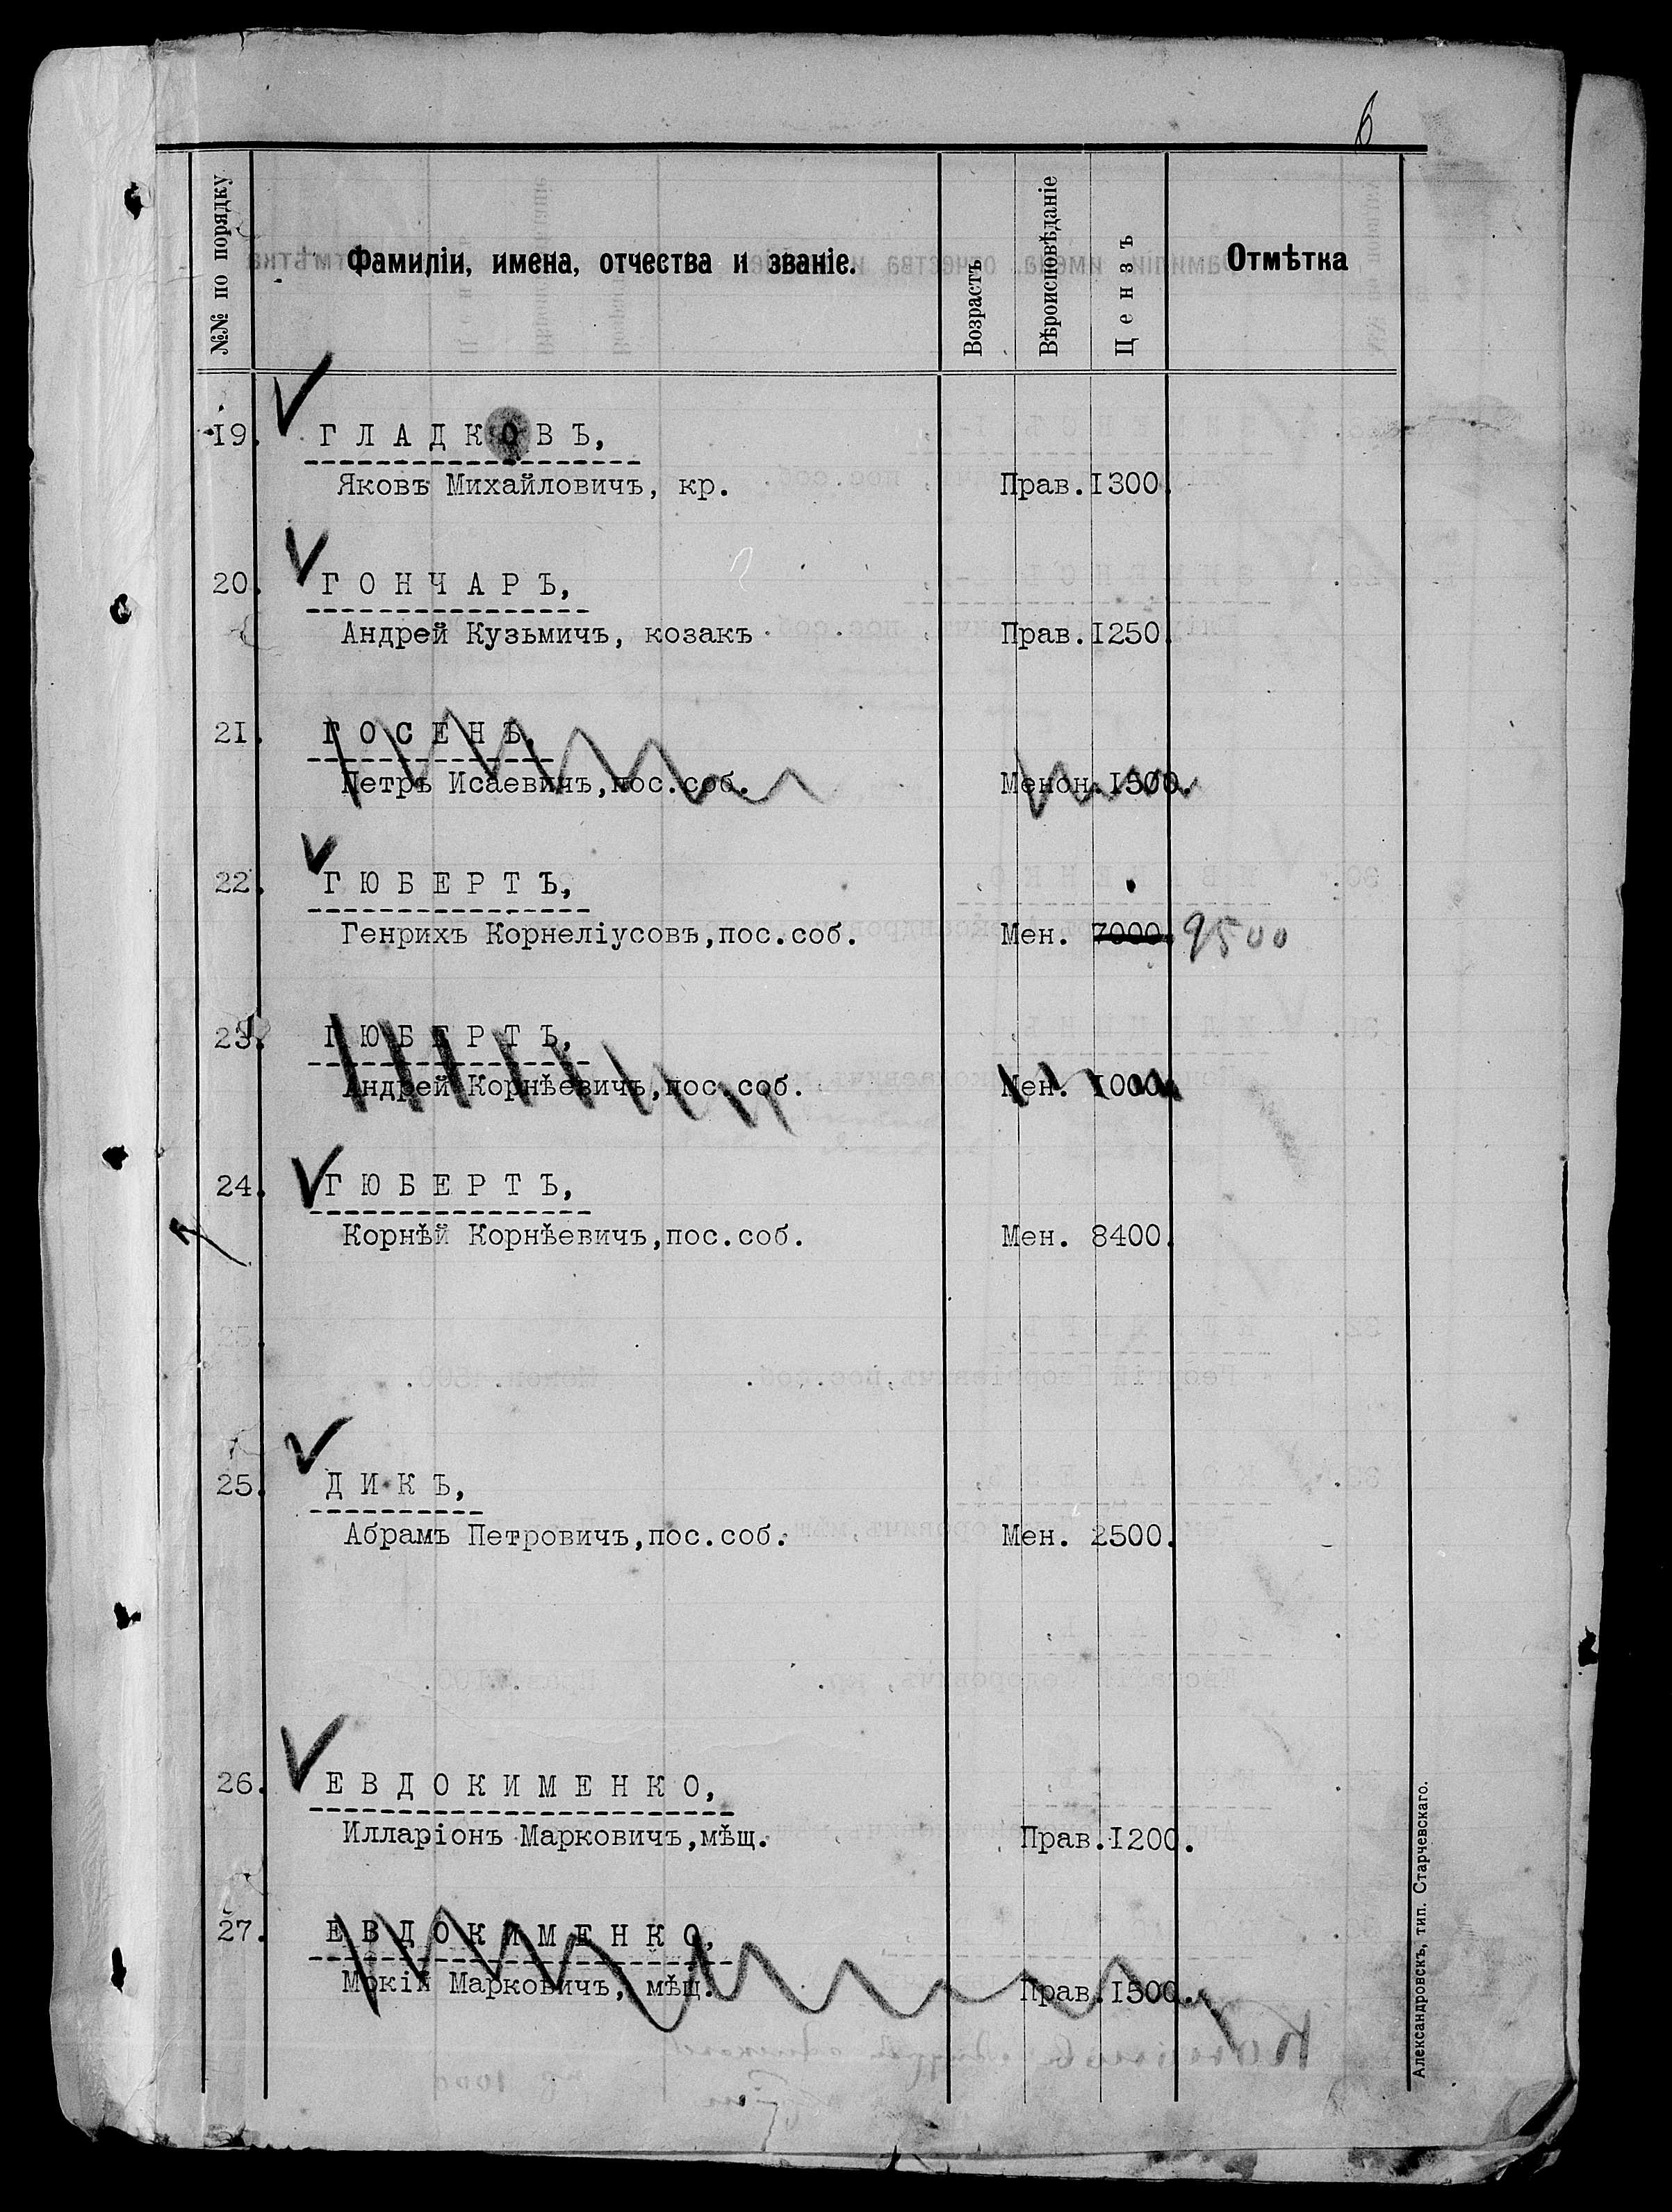 6
№№ по порядку
Фамиліи, имена, отчества и званіе.
Возрастъ
Вѣроисповѣданіе
Цензъ
Отмѣтка
19. ГЛАДКОВЪ,
Яковъ Михайловичъ, кр. Прав. 1300.
20. ГОНЧАРЪ,
Андрей Кузьмичъ, козакъ Прав. 1250.
21. ГОСЕНЪ,
Петръ Исаевичъ, пос. соб. Менон. 1500.
22. ГЮБЕРТЪ,
Генрихъ Корнеліусовъ, пос. соб. Мен. 7000. 9500
23. ГЮБЕРТЪ,
Андрей Корнѣевичъ, пос. соб. Мен. 1000.
24. ГЮБЕРТЪ,
Корнѣй Корнѣевичъ, пос. соб. Мен. 8400.
25.
25. ДИКЪ,
Абрамъ Петровичъ, пос. соб. Мен. 2500.
26. ЕВДОКИМЕНКО,
Илларіонъ Марковичъ, мѣщ. Прав. 1200.
27. ЕВДОКИМЕНКО,
Мокій Марковичъ, мѣщ. Прав. 1500.
Александровскъ, тип. Старчевскаго.